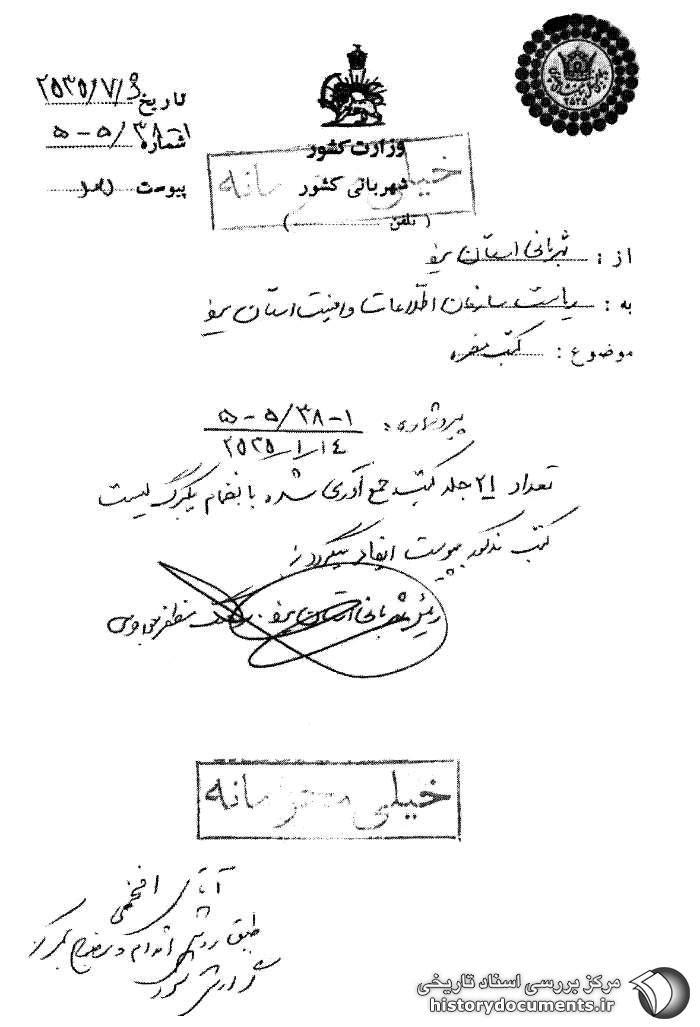 تاریخ ۲۵۳۵/۷/۹
شماره ۱-۵-۵/۳۸
پیوست دارد
۲۵۳۵
وزارت کشور
شهربانی کشور
خیلی محرمانه
( تلفن )
از : شهربانی استان یزد
به : ریاست سازمان اطلاعات و امنیت استان یزد
موضوع : کتب مضره
پیرو شماره : ۱-۵-۵/۳۸
۲۵۳۵/۱/۱۴
تعداد ۲۱ جلد کتب جمع آوری شده بانضمام یکبرگ لیست
کتب مذکور بپیوست ایفاد میگردد
رئیس شهربانی استان یزد . سرهنگ مظفر
خیلی محرمانه
آقای افخمی
طبق روش اقدام و بمرکز
گزارش شود
مرکز بررسی اسناد تاریخی
historydocuments.ir